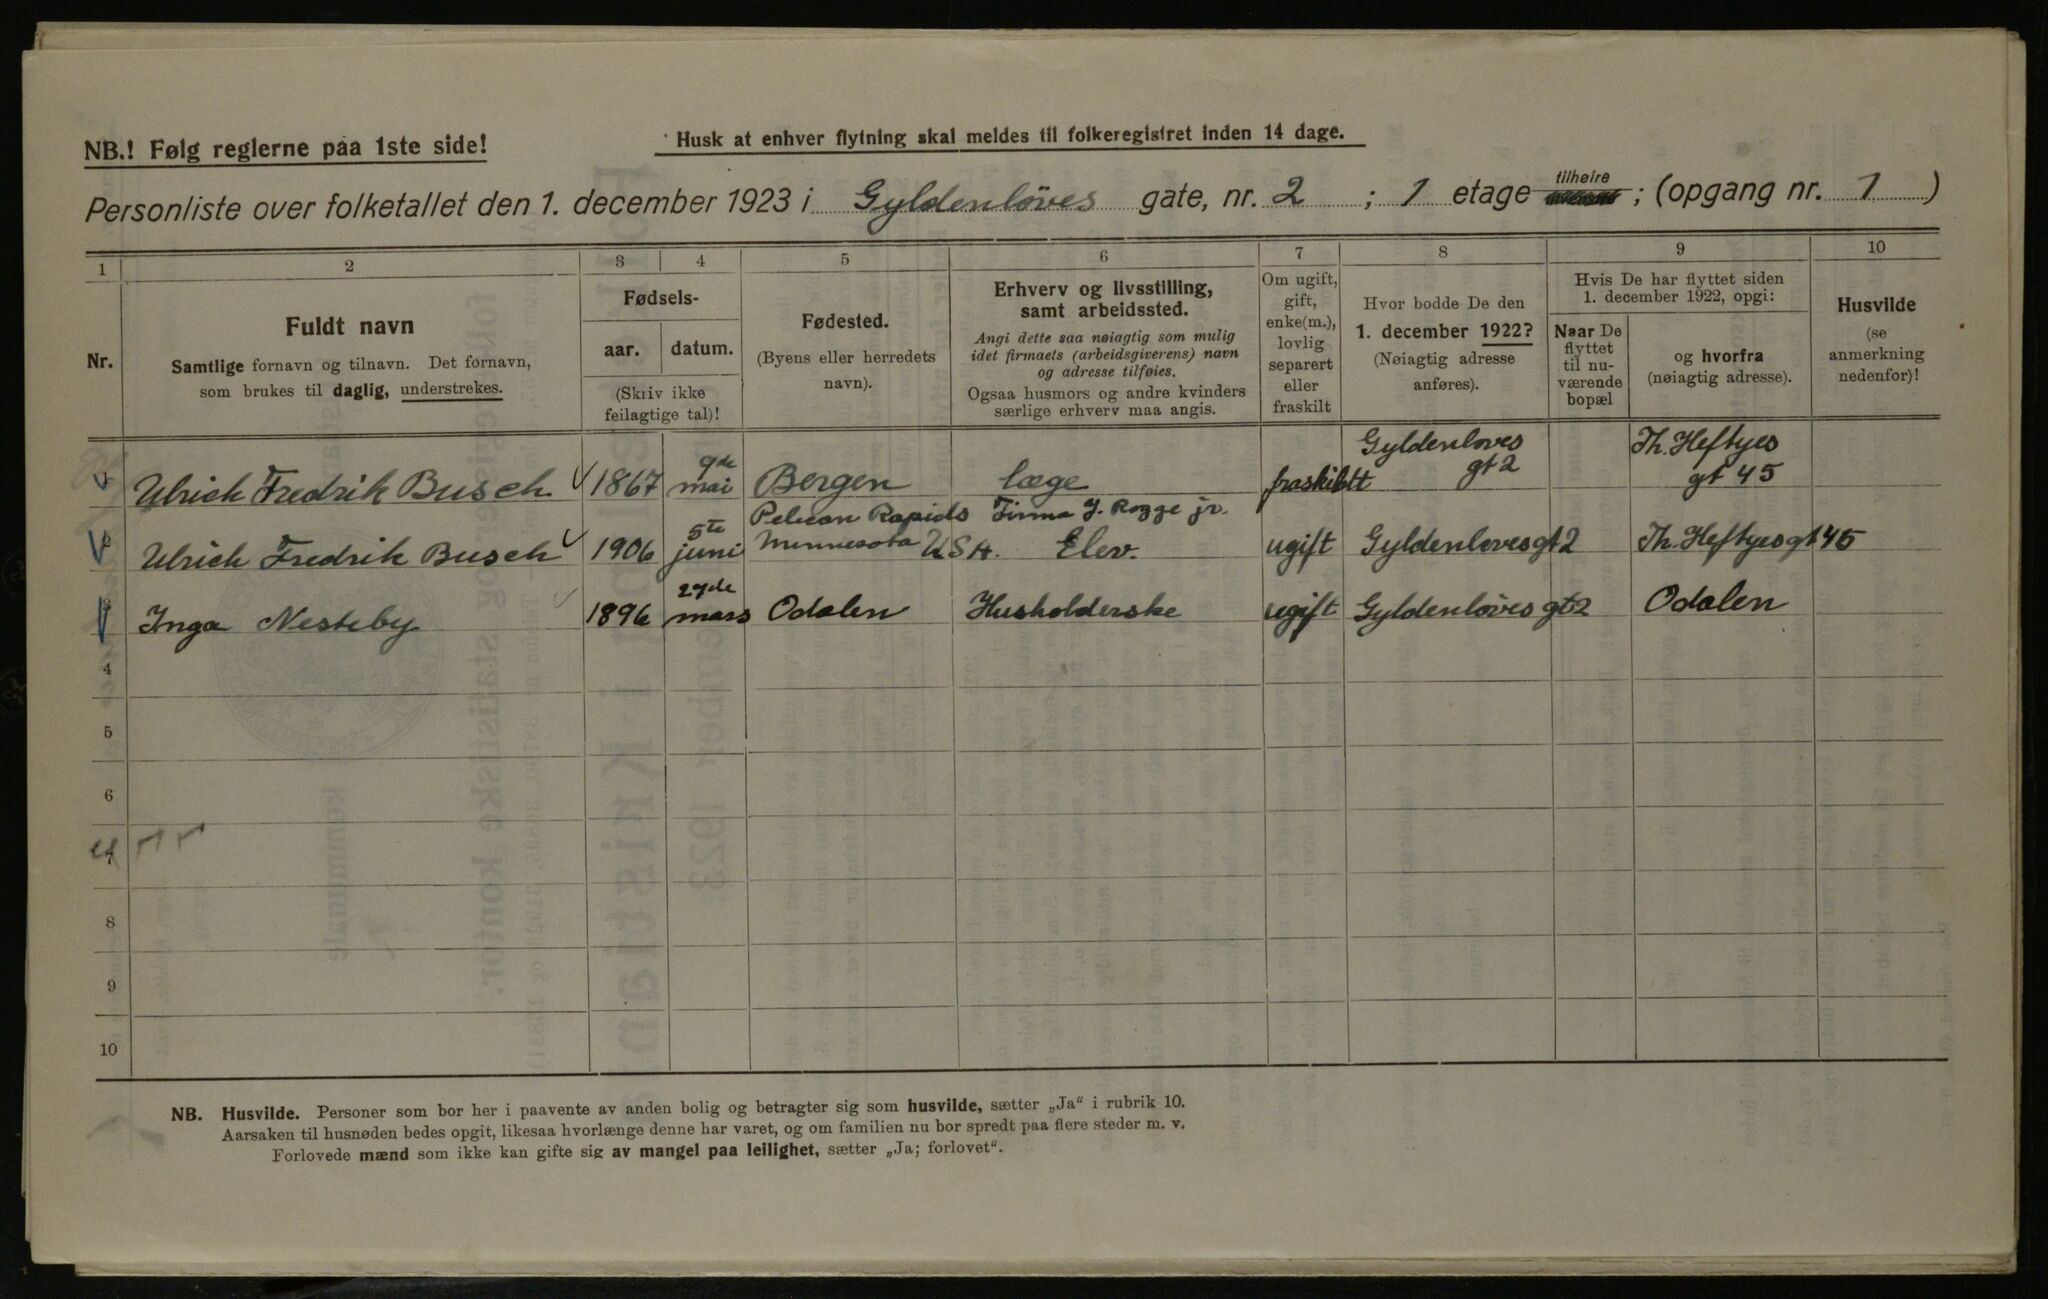 NB.! Følg reglerne paa 1ste side!
Husk at enhver flytning skal meldes til folkeregistret inden 14 dage.
Personliste over folketallet den 1. december 1923 i Gyldenløves gate, nr. 2 ; 1 etage tilhøire ; (opgang nr. 1 )
1 2 3 4 5 6 7 8 9 10
Nr.
Fuldt navn
Samtlige fornavn og tilnavn. Det fornavn,
som brukes til daglig, understrekes.
Fødsels-
aar. datum.
(Skriv ikke
feilagtige tal)!
Fødested.
(Byens eller herredets
navn).
Erhverv og livsstilling,
samt arbeidssted.
Angi dette saa nøiagtig som mulig
idet firmaets (arbeidsgiverens) navn
og adresse tilføies.
Ogsaa husmors og andre kvinders
særlige erhverv maa angis.
Om ugift,
gift,
enke(m.),
lovlig
separert
eller
fraskilt
Hvor bodde De den
1. december 1922?
(Nøiagtig adresse
anføres).
Hvis De har flyttet siden
1. december 1922, opgi:
Naar De
flyttet
til nu-
værende
bopæl
og hvorfra
(nøiagtig adresse).
Husvilde
(se
anmerkning
nedenfor)!
1 Ulrich Fredrik Busch 1867 9de mai Bergen læge fraskildt Gyldenløves gt 2 Th. Heftyes gt 45
2 Ulrich Fredrik Busch 1906 5te juni Pelican Rapids Minnesota USA. Firma J. Rogge jr. Elev. ugift Gyldenløvesgt 2 Th. Heftyesgt 45
3 Inga Nesteby 1896 29de mars Odalen Husholderske ugift Gyldenløvesgt 2 Odalen
4
5
6
7
8
9
10
NB. Husvilde. Personer som bor her i paavente av anden bolig og betragter sig som husvilde, sætter „Ja“ i rubrik 10.
Aarsaken til husnøden bedes opgit, likesaa hvorlænge denne har varet, og om familien nu bor spredt paa flere steder m. v.
Forlovede mænd som ikke kan gifte sig av mangel paa leilighet, sætter „Ja; forlovet“.